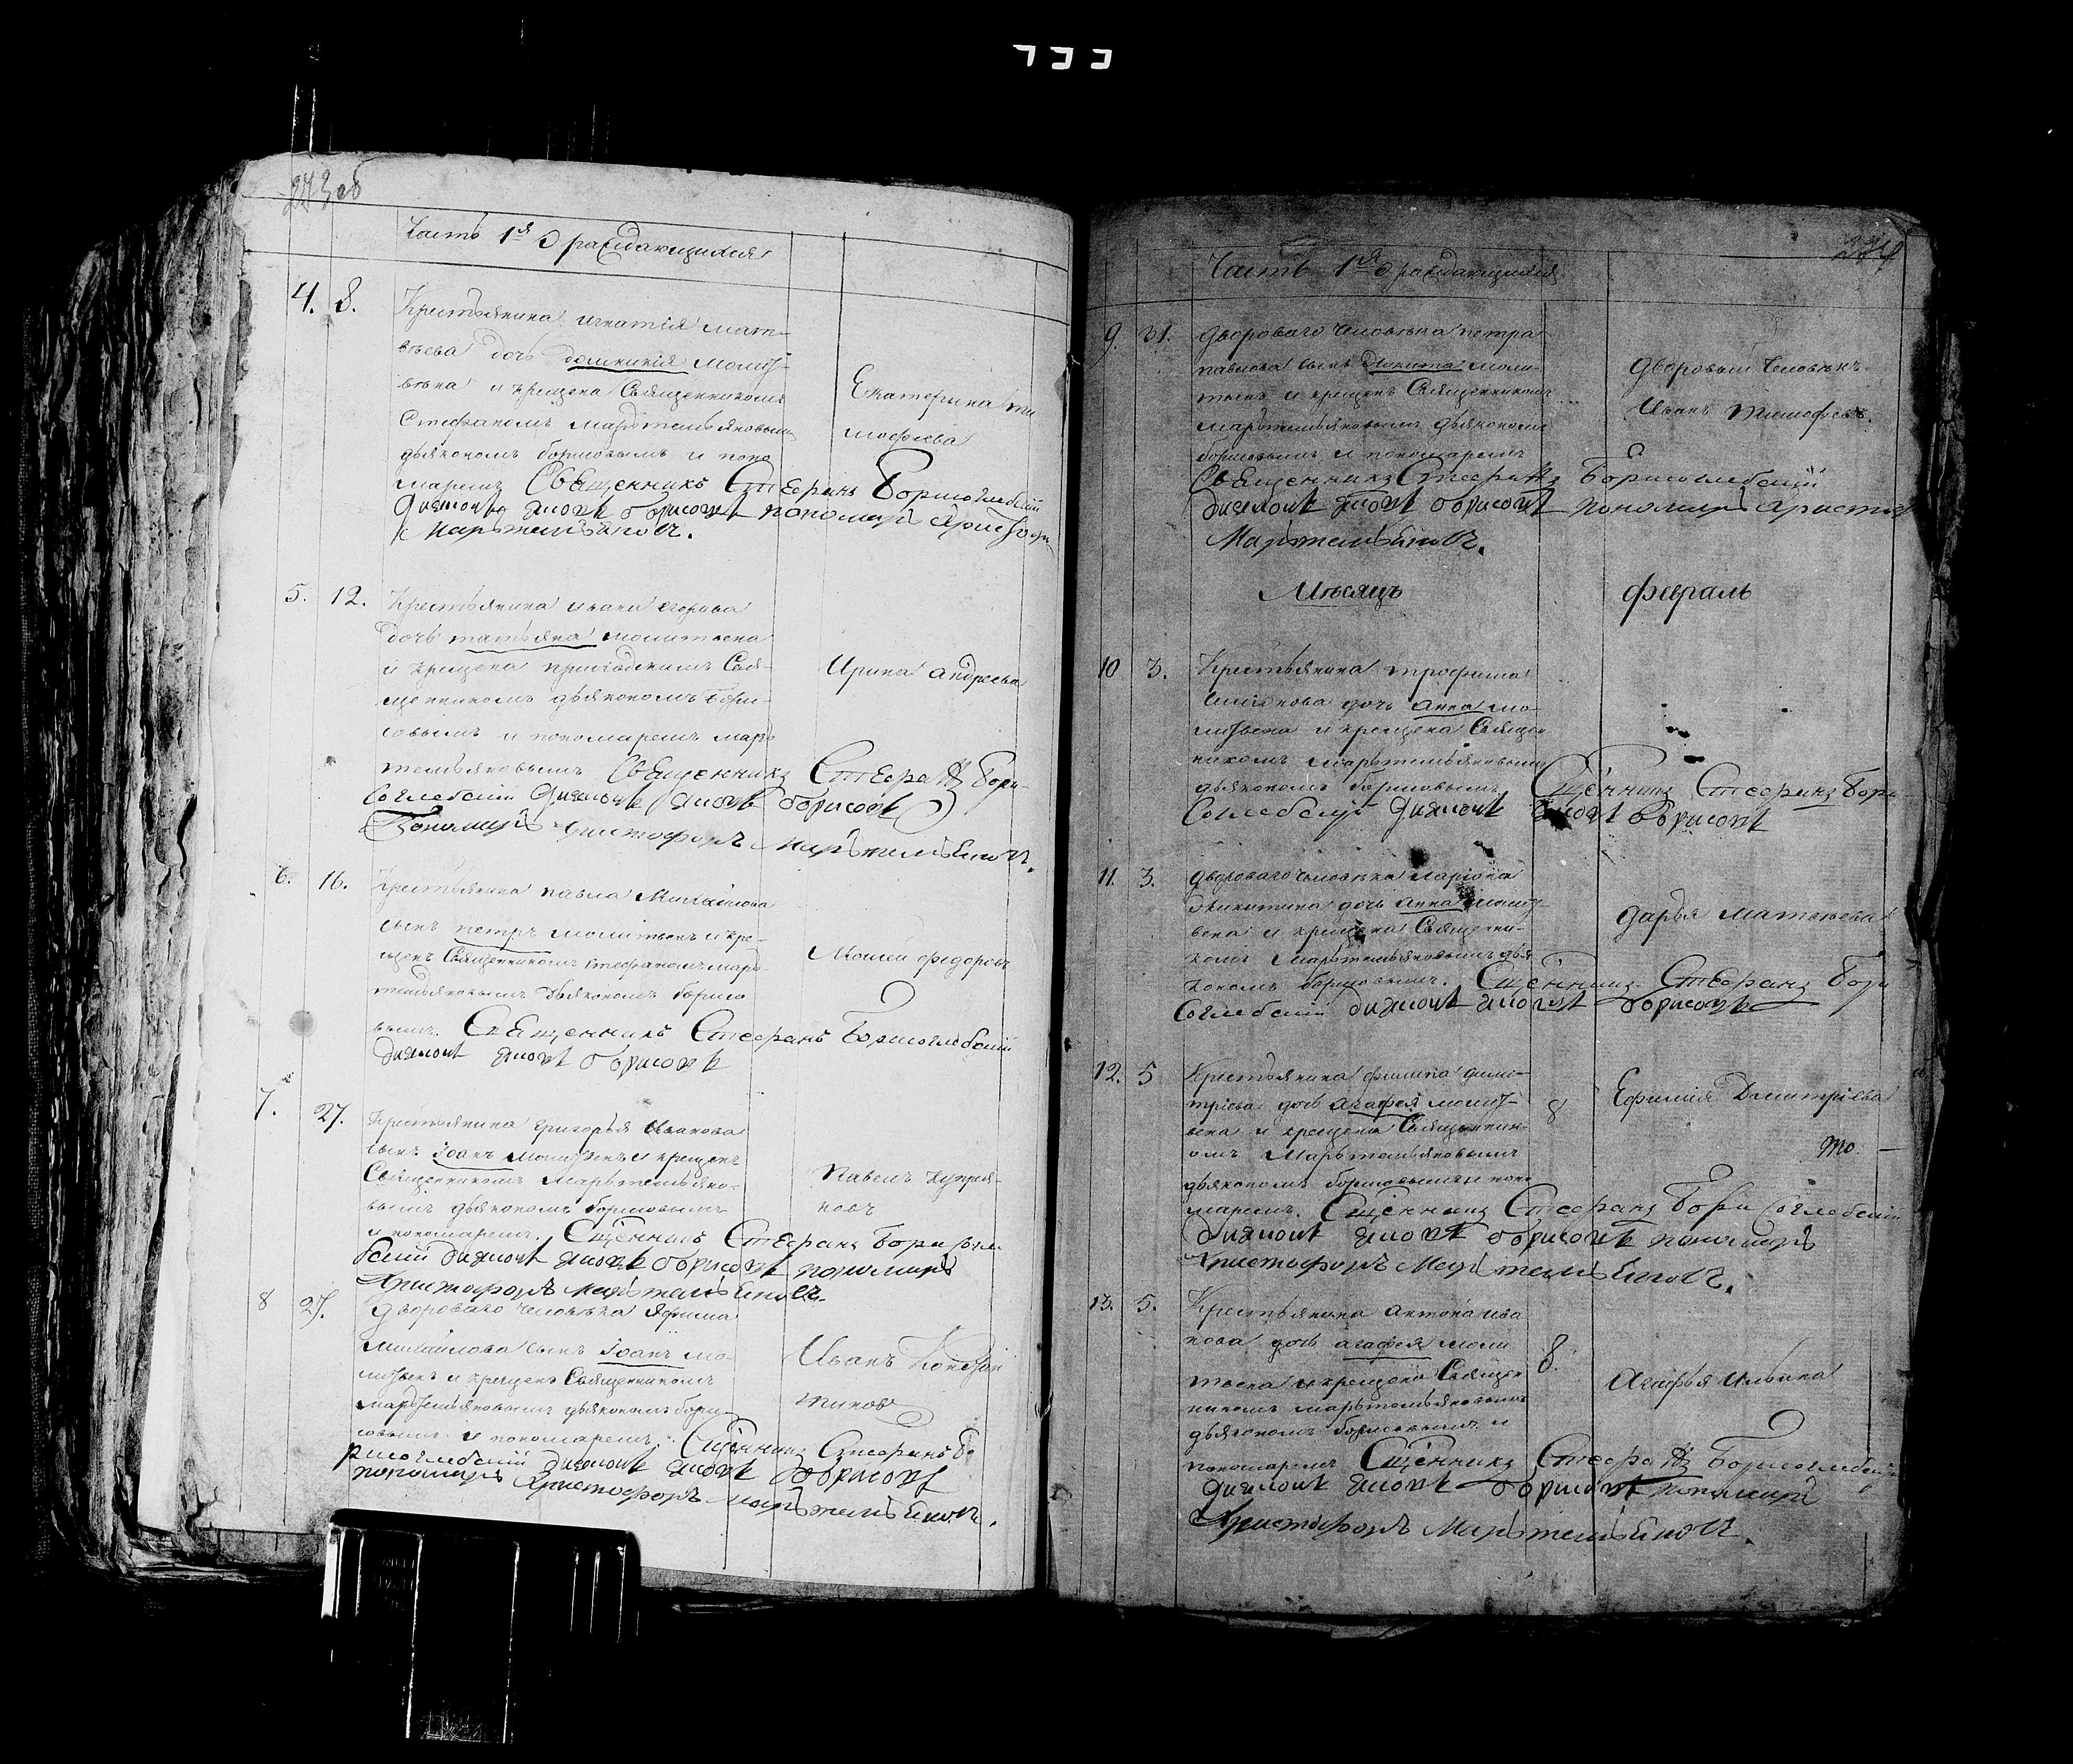 243 об
Часть 1я о раждающихся
4. 8. Крестьянина игнатія мат-
вѣева дочь домникія молит-
вѣна и крещена Священникомъ
Стефаномъ мартемьяновымъ
дьякономъ борисовымъ и поно
маремъ Священникъ Стефанъ Борисоглебскій
диаконъ яковъ борисовъ пономарь христофоръ
Мартемьяновъ.
Екатерина ти
мофѣева
5. 12. Крестьянина ивана егорова
дочь татьяна молитвена
и крещена приходскимъ Свя-
щенникомъ дьякономъ бори-
совымъ и пономаремъ март
темьяновымъ Священникъ Стефанъ Бори-
соглебскій диаконъ яковъ борисовъ
Пономарь христофоръ Мартемьяновъ.
Ирина андреева
6. 16. Крестьянина павла Михайлова
сынъ петръ молитвенъ и кре-
щенъ Священникомъ стефаномъ мар-
темьяновымъ дьякономъ борисо
вымъ. Священникъ Стефанъ Борисоглебскій
диаконъ яковъ борисовъ
Моисей федоровъ
7. 27. Крестьянина григорья Иванова
сынъ іоанъ молитвенъ и крещенъ
Священникомъ Мартемьяно-
вымъ дьякономъ борисовымъ
и пономаремъ. Сщенникъ Стефанъ Борисогле
бский диаконъ яковъ борисовъ пономарь
Христофоръ Мартемьяновъ.
Павелъ купрея-
новъ
8 27. Двороваго человѣка Яфима
михайлова сынъ іоанъ мо-
литвенъ и крещенъ Священникомъ
мартемьяновымъ дьякономъ бори-
совымъ и пономаремъ. Сщенникъ Стефанъ Бо
рисоглебский диаконъ яковъ борисовъ
пономарь Христофоръ Мартемьяновъ.
Иванъ
244
Часть 1я о раждающихся
9. 31. двороваго человѣка петра
павлова сынъ Никита моли-
твенъ и крещенъ Священникомъ
мартемьяновымъ дьякономъ
борисовымъ и пономаремъ
Священникъ Стефанъ Борисоглебский
диаконъ яковъ борисовъ пономарь христоф
Мартемьяновъ.
дворовый человѣкъ
Иванъ Тимофеевъ.
Мѣсяцъ февраль
10 3. Крестьянина трофима
дочь анна мо-
литвена и крещена Священ
никомъ мартемьяновымъ
дьякономъ борисовымъ. Сщенникъ Стефанъ Бори
соглебскій диаконъ яковъ Борисовъ
11. 3. двороваго человѣка ларіона
Никитина дочь анна молит-
вена и крещена Священни-
комъ Мартемьяновымъ дья
кономъ борисовымъ. Сщенникъ Стефанъ Бори
соглебский диаконъ яковъ борисовъ
дарья матвѣева
12. 5 Крестьянина филипа дими-
тріева дочь агафея молит-
вена и крещена Священник-
омъ Мартемьяновымъ
дьякономъ борисовымъ и поно
маремъ. Сщенникъ Стефанъ Борисоглебский
диаконъ яковъ борисовъ пономарь
Христофоръ Мартемьяновъ.
8
Ефимія Димитріева
13. 5. Крестьянина антона ива
нова дочь агафея моли
твена и крещена Священ
никомъ мартемьяновымъ
дьякономъ борисовымъ и
пономаремъ Сщенникъ Стефанъ Борисоглебский
диаконъ яковъ борисовъ пономарь
Христофоръ Мартемьяновъ.
8.
Агафья Ильина